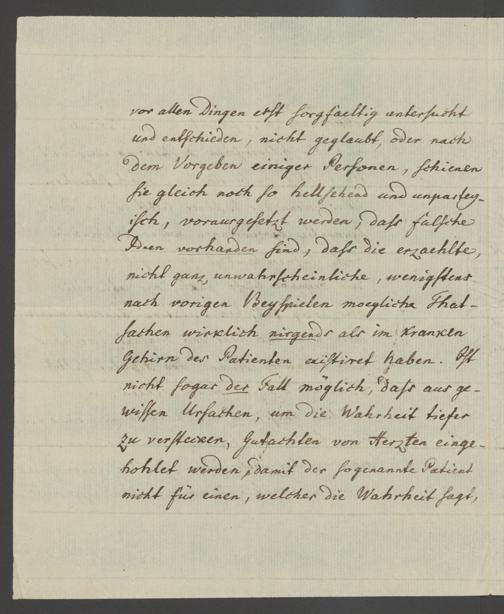 vor allen Dingen erst sorgfaeltig untersucht
und entschieden, nicht geglaubt, oder nach
dem Vorgeben einiger Personen, schienen
sie gleich noch so hellsehend und unpartey-
isch, vorausgesetzt werden, dass falsche
Ideen vorhanden sind, dass die erzaehlte,
nicht ganz unwahrscheinliche, wenigstens
nach vorigen Beyspielen moegliche That-
sachen wirklich nirgends als im kranken
Gehirn des Patienten existiret haben. Ist
nicht sogar der Fall möglich, dass aus ge-
wissen Ursachen, um die Wahrheit tiefer
zu verstecken, Gutachten von Aerzten einge-
hohlet werden, damit der sogenannte Patient
nicht für einen, welcher die Wahrheit sagt,